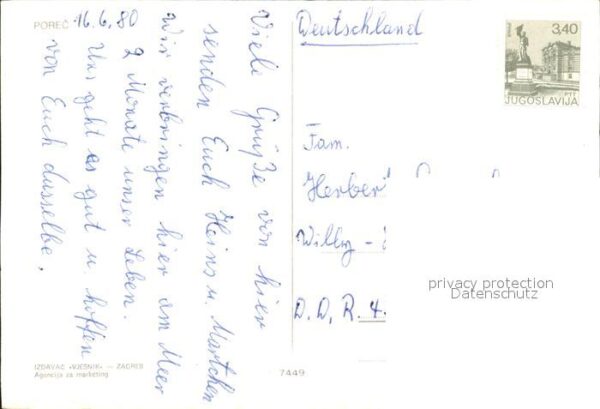 POREČ 16.6.80
Deutschland
3,40
PTT
JUGOSLAVIJA
Viele Grüße von hier
senden Euch Heinz u. Martchen
Wir verbringen hier am Meer
2 Monate unser Leben.
Uns geht es gut u. hoffen
von Euch dasselbe.
Fam.
Herber
Willy -
D.D.R. 4.
privacy protection
Datenschutz
IZDAVAČ «VJESNIK» — ZAGREB
Agencija za marketing
7449